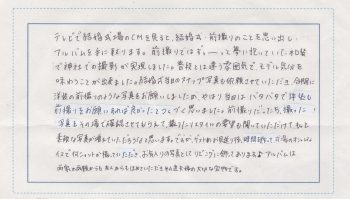 テレビで結婚式場のCMを見ると、結婚式・前撮りのことを思い出し、
アルバムを手に取ります。前撮りではず〜っと夢に抱いていた和装
で神社での撮影が実現しました。普段とは違う雰囲気で、モデル気分を
味わうことが出来ました。結婚式当日のスナップ写真も依頼させていただき、合間に
洋装の前撮りのような写真もお願いしましたが、やはり当日はバタバタで洋装も
前撮りをお願いすれば良かったとつくづく思いました。前撮りだったら、撮った
写真をその場で確認させてもらえて、撮りたいスタイルの要望も聞いていただけて、もっと
素敵な写真が撮れていただろうなと思います。でも、ゲストがお見送り後、時間を押して広場のオシャレな
イスで何ショットか撮っていただき、お気入りの写真としてリビングに飾ってあります。アルバムは
両家の両親からも友人からもほめていただき、そのまま大切な宝物です。